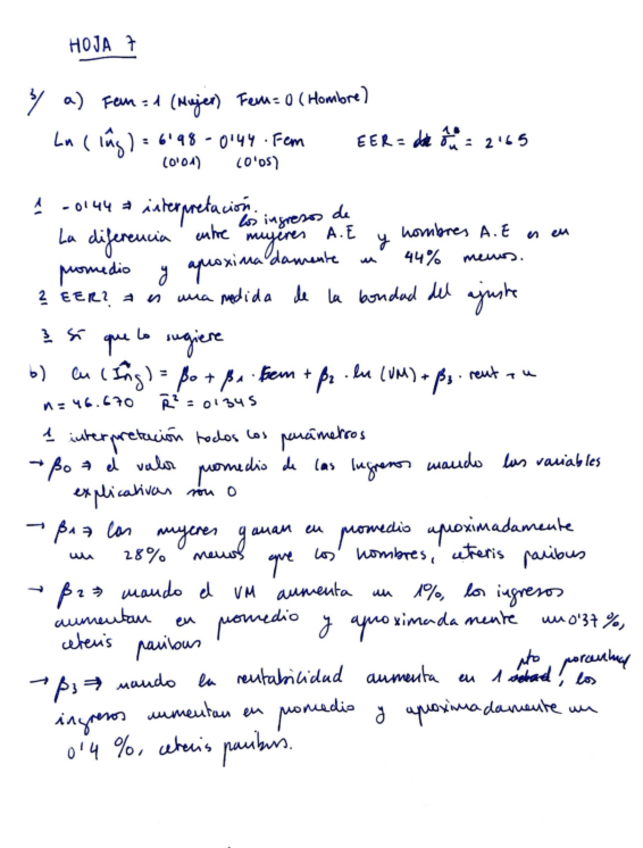 HOJA 7
3/ a) Fem = 1 (Mujer) Fem = 0 (Hombre)
Ln (Inĝ) = 6'98 - 0'44 · Fem EER = σ̂u = 2'65
(0'01) (0'05)
1 -0'44 ⇒ interpretación.
La diferencia entre los ingresos de mujeres A.E y hombres A.E es en
promedio y aproximadamente un 44% menos.
2 EER? ⇒ es una medida de la bondad del ajuste
3 Sí que lo sugiere
b) Ln (Inĝ) = β0 + β1 · Fem + β2 · ln (VM) + β3 · rent + u
n = 46.670 R̄² = 0'345
1 interpretación todos los parámetros
→ β0 ⇒ el valor promedio de los Ingresos cuando las variables
explicativas son 0
→ β1 ⇒ las mujeres ganan en promedio aproximadamente
un 28% menos que los hombres, ceteris paribus
→ β2 ⇒ cuando el VM aumenta un 1%, los ingresos
aumentan en promedio y aproximadamente un 0'37%,
ceteris paribus
→ β3 ⇒ cuando la rentabilidad aumenta en 1 pto porcentual, los
ingresos aumentan en promedio y aproximadamente un
0'4 %, ceteris paribus.